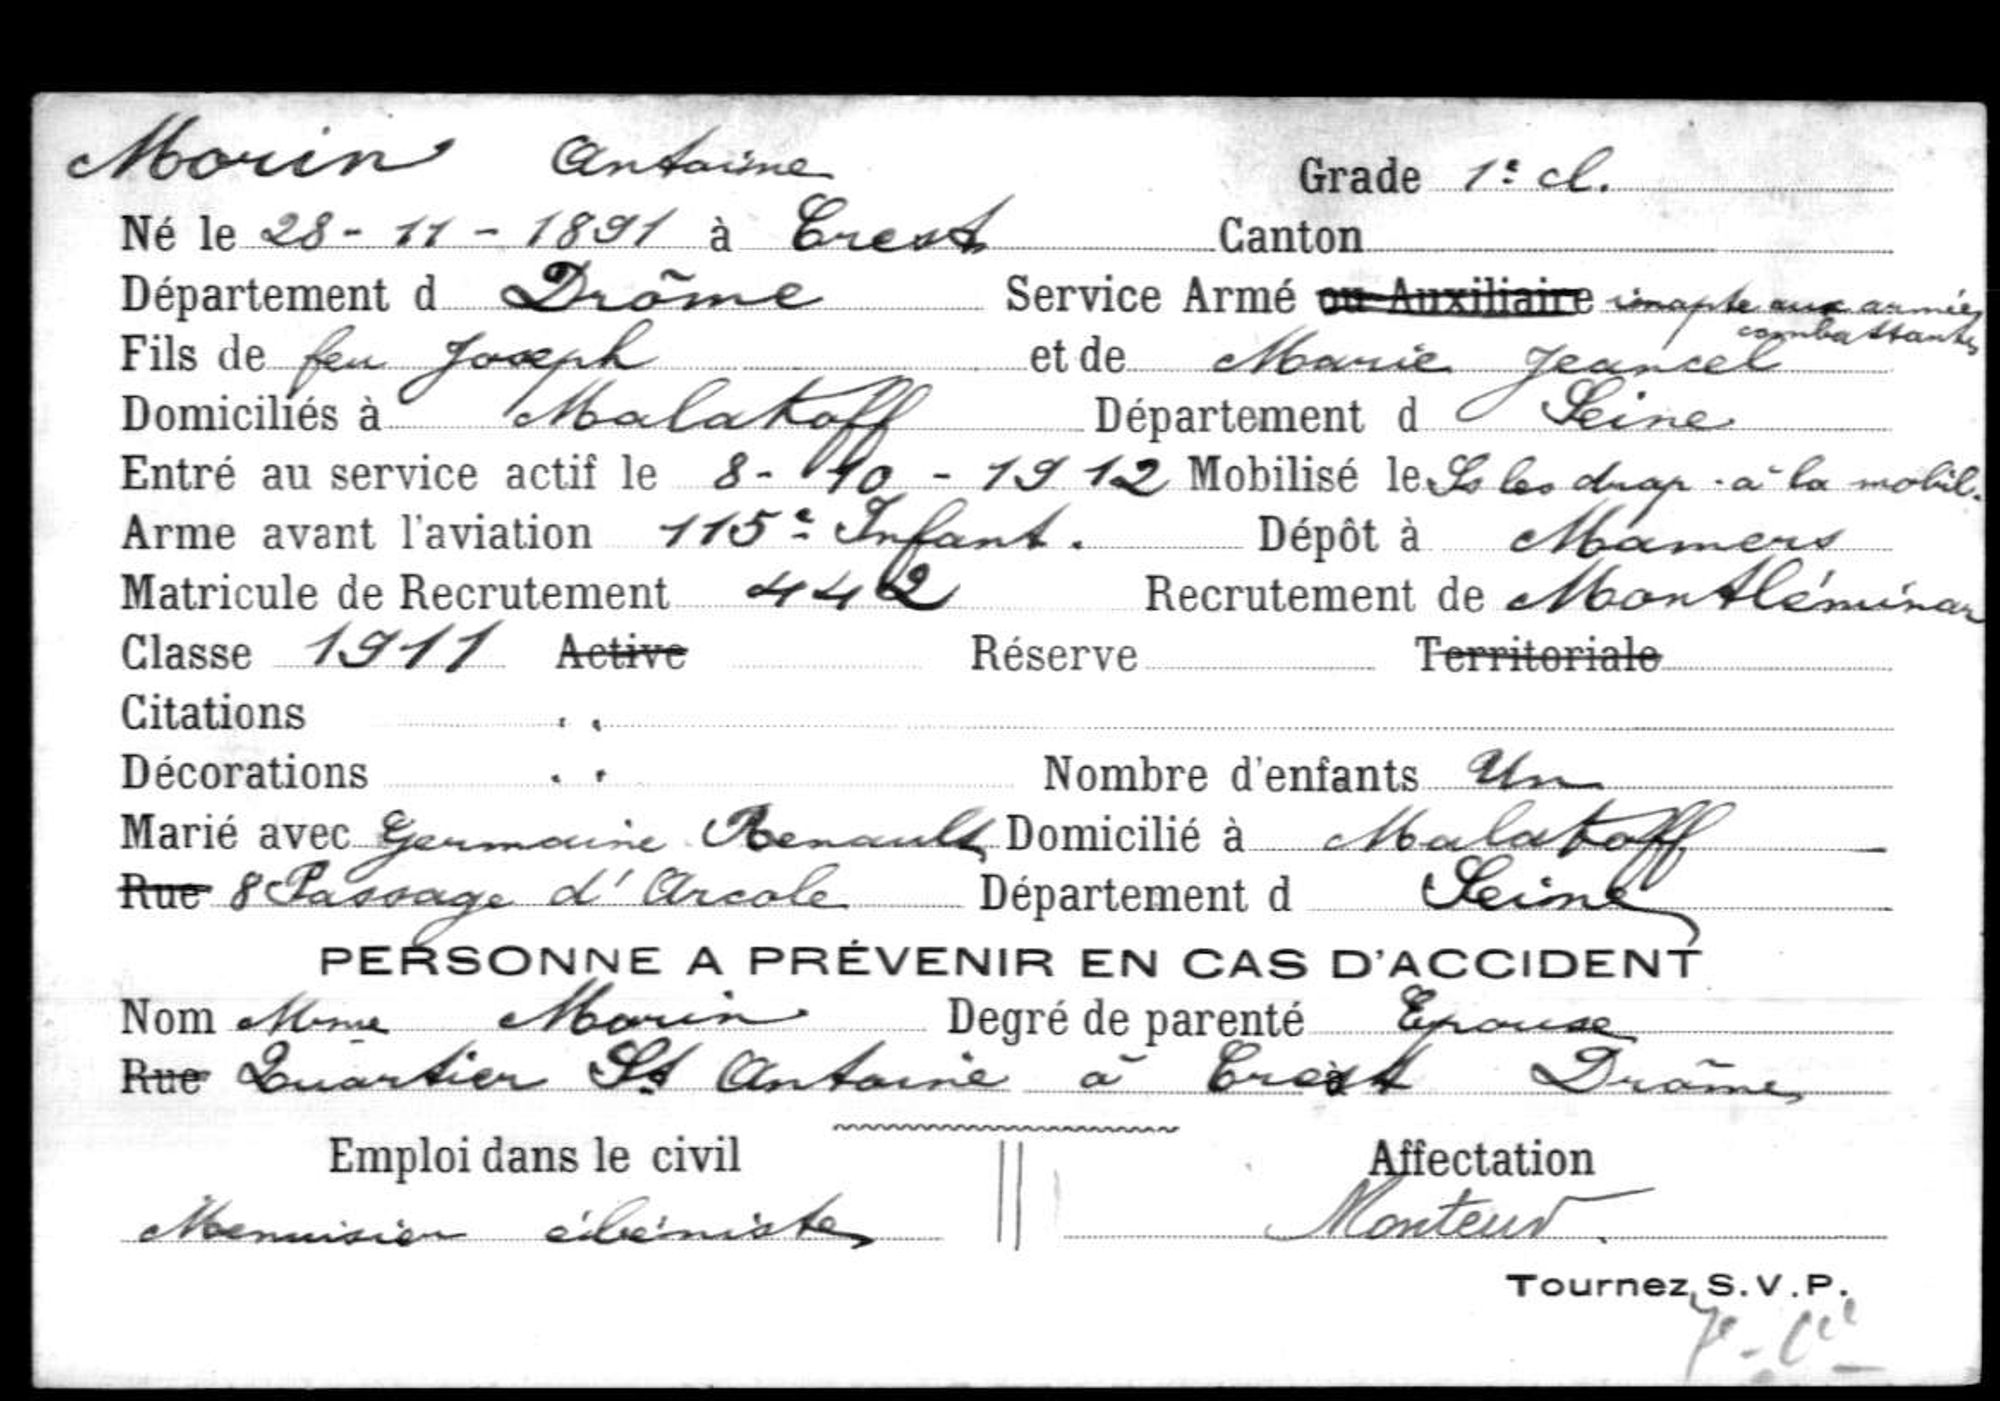 Morin Antoine Grade 1e cl.
Né le 28-11-1891 à Crest Canton
Département d Drôme Service Armé ou Auxiliaire inapte aux armées
combattantes
Fils de feu Joseph et de Marie Jeancel
Domiciliés à Malakoff Département d Seine
Entré au service actif le 8-10-1912 Mobilisé le Ss les drap. à la mobil.
Arme avant l'aviation 115e Infant. Dépôt à Mamers
Matricule de Recrutement 442 Recrutement de Montléminar
Classe 1911 Active Réserve Territoriale
Citations . .
Décorations . .  Nombre d'enfants Un
Marié avec Germaine Renault Domicilié à Malakoff
Rue 8 Passage d'Arcole Département d Seine
PERSONNE A PRÉVENIR EN CAS D'ACCIDENT
Nom Mme Morin Degré de parenté Epouse
Rue Quartier St Antoine à Crest Drôme
Emploi dans le civil Affectation
Menuisier ébéniste Monteur
Tournez S.V.P.
7e - Cie